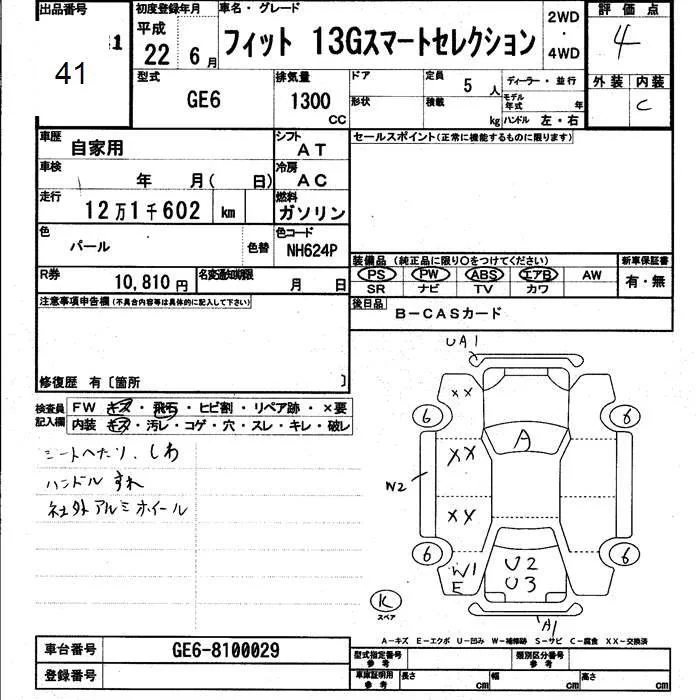 出品番号
1
41
初度登録年月
平成
22 6月
車名・グレード
フィット 13Gスマートセレクション
2WD
・
4WD
評価点
4
外装 内装
C
型式
GE6
排気量
1300
CC
ドア
形状
定員
5人
積載
kg
ディーラー・並行
モデル年式 年
ハンドル 左・右
車歴
自家用
シフト
AT
車検
年 月( 日)
冷房
AC
走行
12万1千602 km
燃料
ガソリン
色
パール
色替
色コード
NH624P
R券
10,810円
名変通知期限
月 日
セールスポイント(正常に機能するものに限ります)
装備品(純正品に限り○をつけてください)
PS PW ABS エアB AW
SR ナビ TV カワ
新車保証書
有・無
後日品
B-CASカード
注意事項申告欄(不具合内容等は具体的に記入して下さい)
修復歴 有〔箇所 〕
検査員記入欄
FW キズ・飛石・ヒビ割・リペア跡・×要
内装 キズ・汚レ・コゲ・穴・スレ・キレ・破レ
シートへたり、しわ
ハンドルすれ
社外アルミホイール
UA1
XX
6 6
A
XX
W2
XX
6 6
W1
E
U2
U3
K
スペア
A1
A-キズ E-エクボ U-凹み W-補修跡 S-サビ C-腐食 XX-交換済
車台番号
GE6-8100029
登録番号
型式指定番号
参考
類別区分番号
参考
車庫証明用
参考
長さ cm 幅 cm 高さ cm